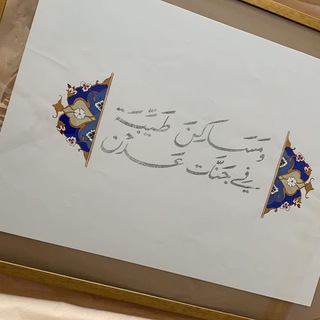 وَمَسَاكِنَ طَيِّبَةً
فِي جَنَّاتِ عَدْنٍ